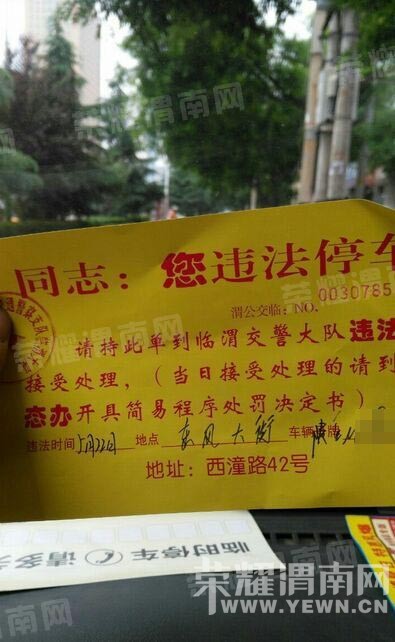 荣耀渭南网
同志：您违法停车
渭公交临：NO.
0030785
请持此单到临渭交警大队违法
接受处理，（当日接受处理的请到
态办开具简易程序处罚决定书）
违法时间5月22日 地点 东风大街 车辆牌 陕
地址：西潼路42号
临时停车 请多关
荣耀渭南网
WWW.YEWN.CN